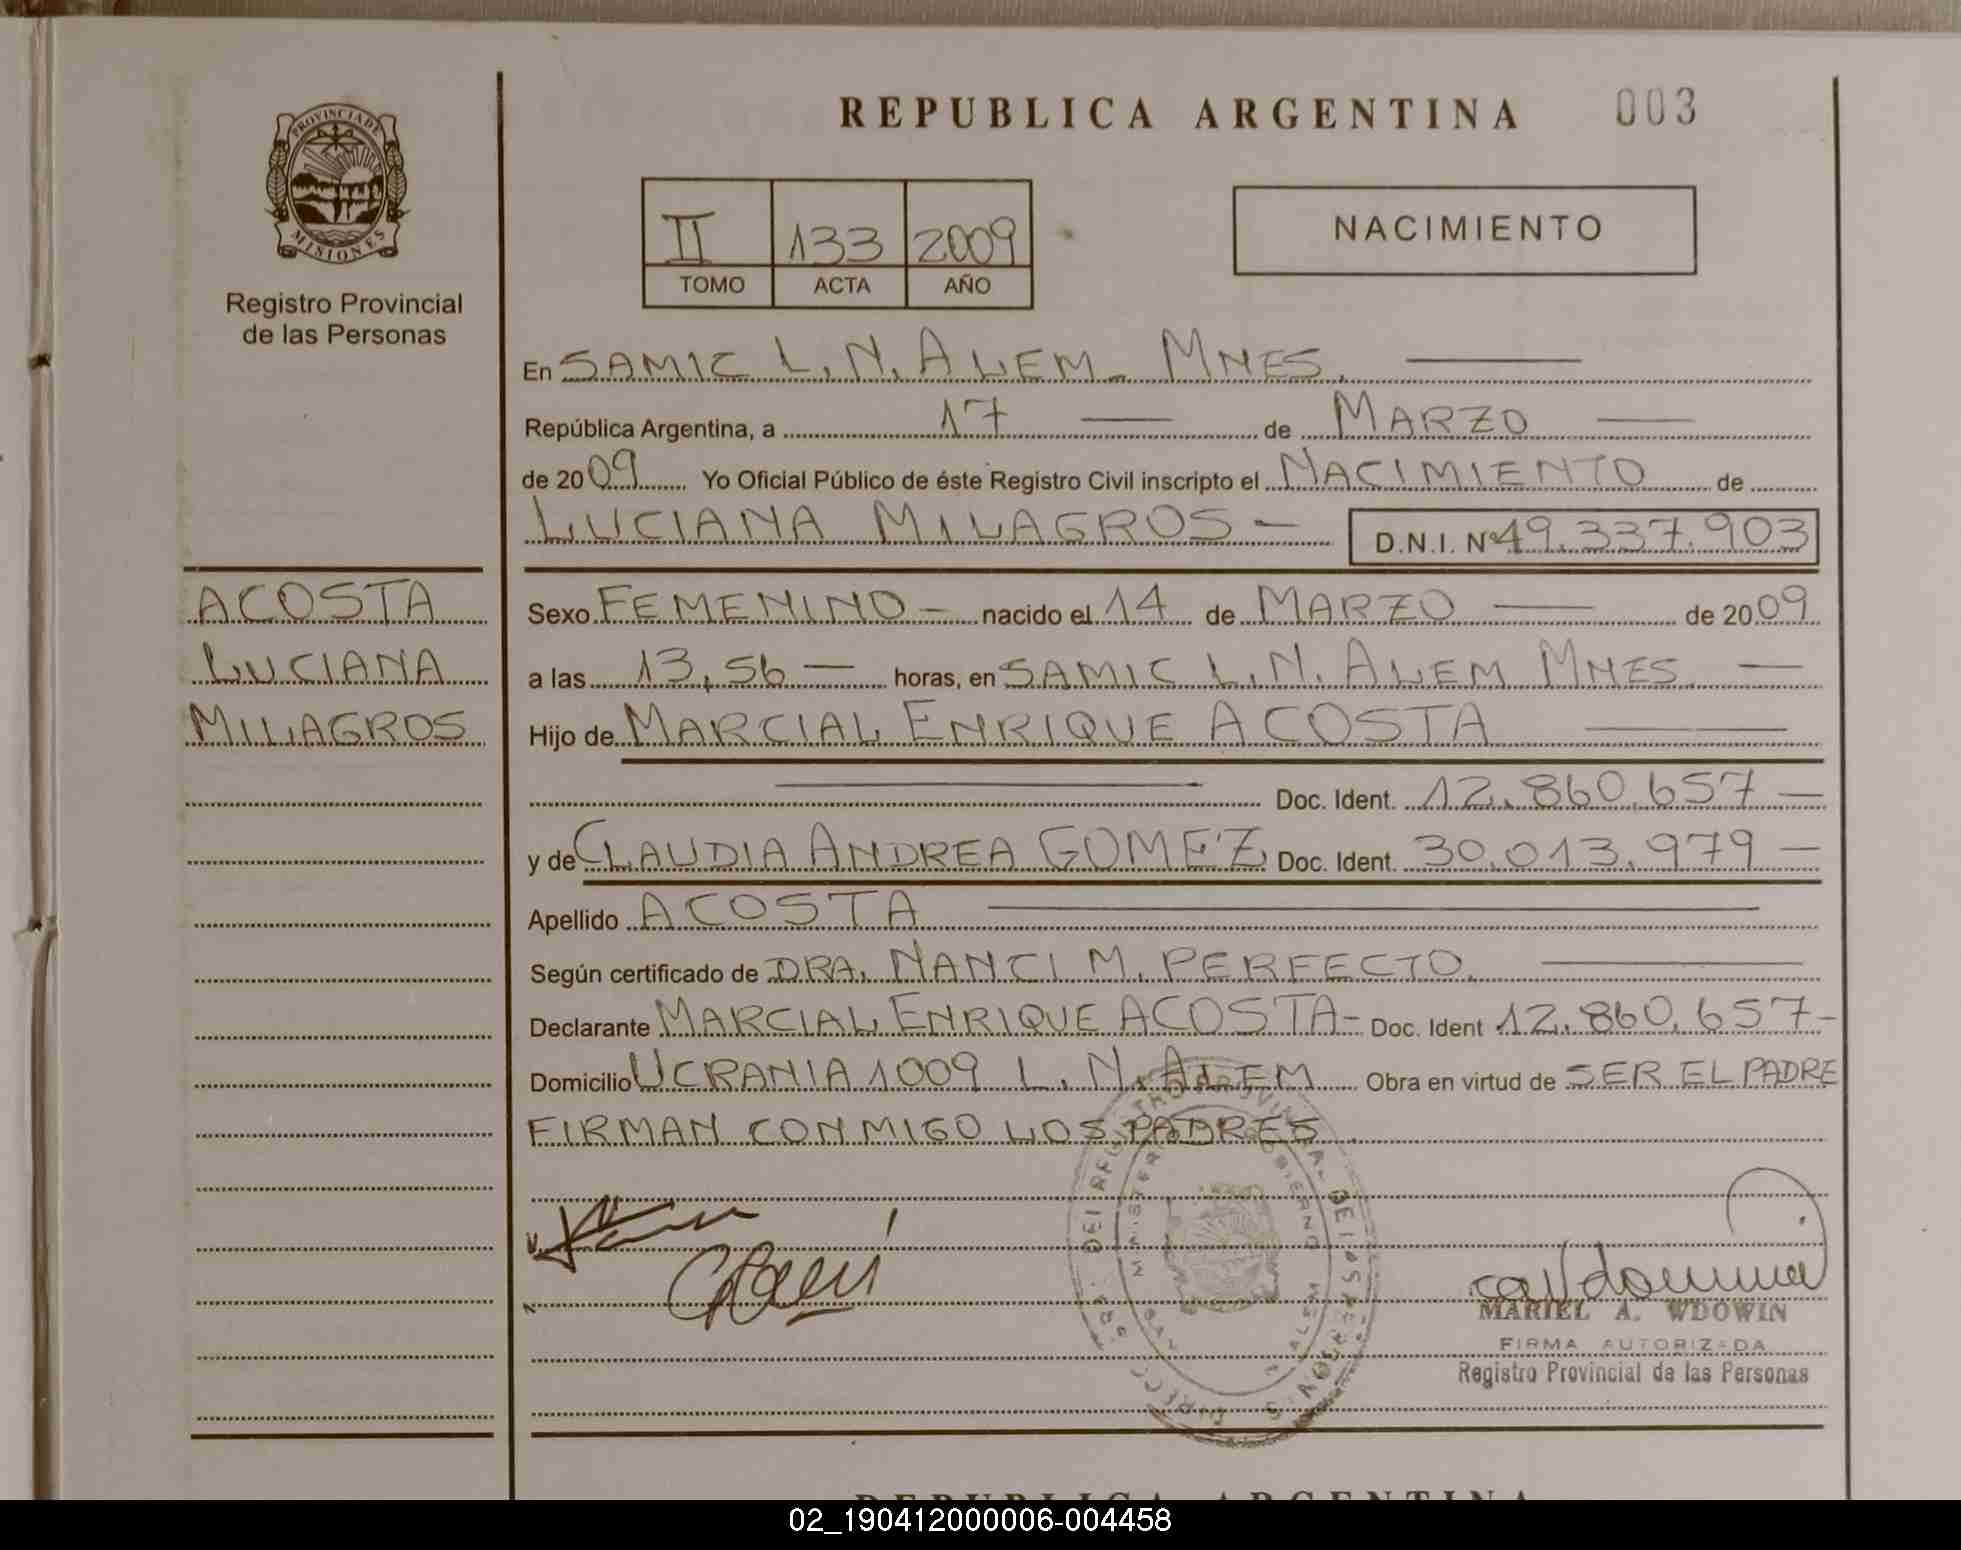 REPUBLICA ARGENTINA 003
PROVINCIA DE
MISIONES
Registro Provincial
de las Personas
II 133 2009
TOMO ACTA AÑO
NACIMIENTO
En SAMIC L.N. ALEM - MNES.
República Argentina, a 17 de MARZO
de 2009 Yo Oficial Público de éste Registro Civil inscripto el NACIMIENTO de
LUCIANA MILAGROS - D.N.I. Nº 49.337.903
ACOSTA
LUCIANA
MILAGROS
Sexo FEMENINO - nacido el 14 de MARZO de 2009
a las 13,56 horas, en SAMIC L.N. ALEM MNES
Hijo de MARCIAL ENRIQUE ACOSTA
Doc. Ident. 12.860.657
y de CLAUDIA ANDREA GOMEZ Doc. Ident. 30.013.979
Apellido ACOSTA
Según certificado de DRA. NANCI M. PERFECTO.
Declarante MARCIAL ENRIQUE ACOSTA - Doc. Ident 12.860.657-
Domicilio UCRANIA 1009 L.N. ALEM Obra en virtud de SER EL PADRE
FIRMAN CONMIGO LOS PADRES.
MARIEL A. WDOWIN
FIRMA AUTORIZADA
Registro Provincial de las Personas
REPUBLICA ARGENTINA
02_190412000006-004458